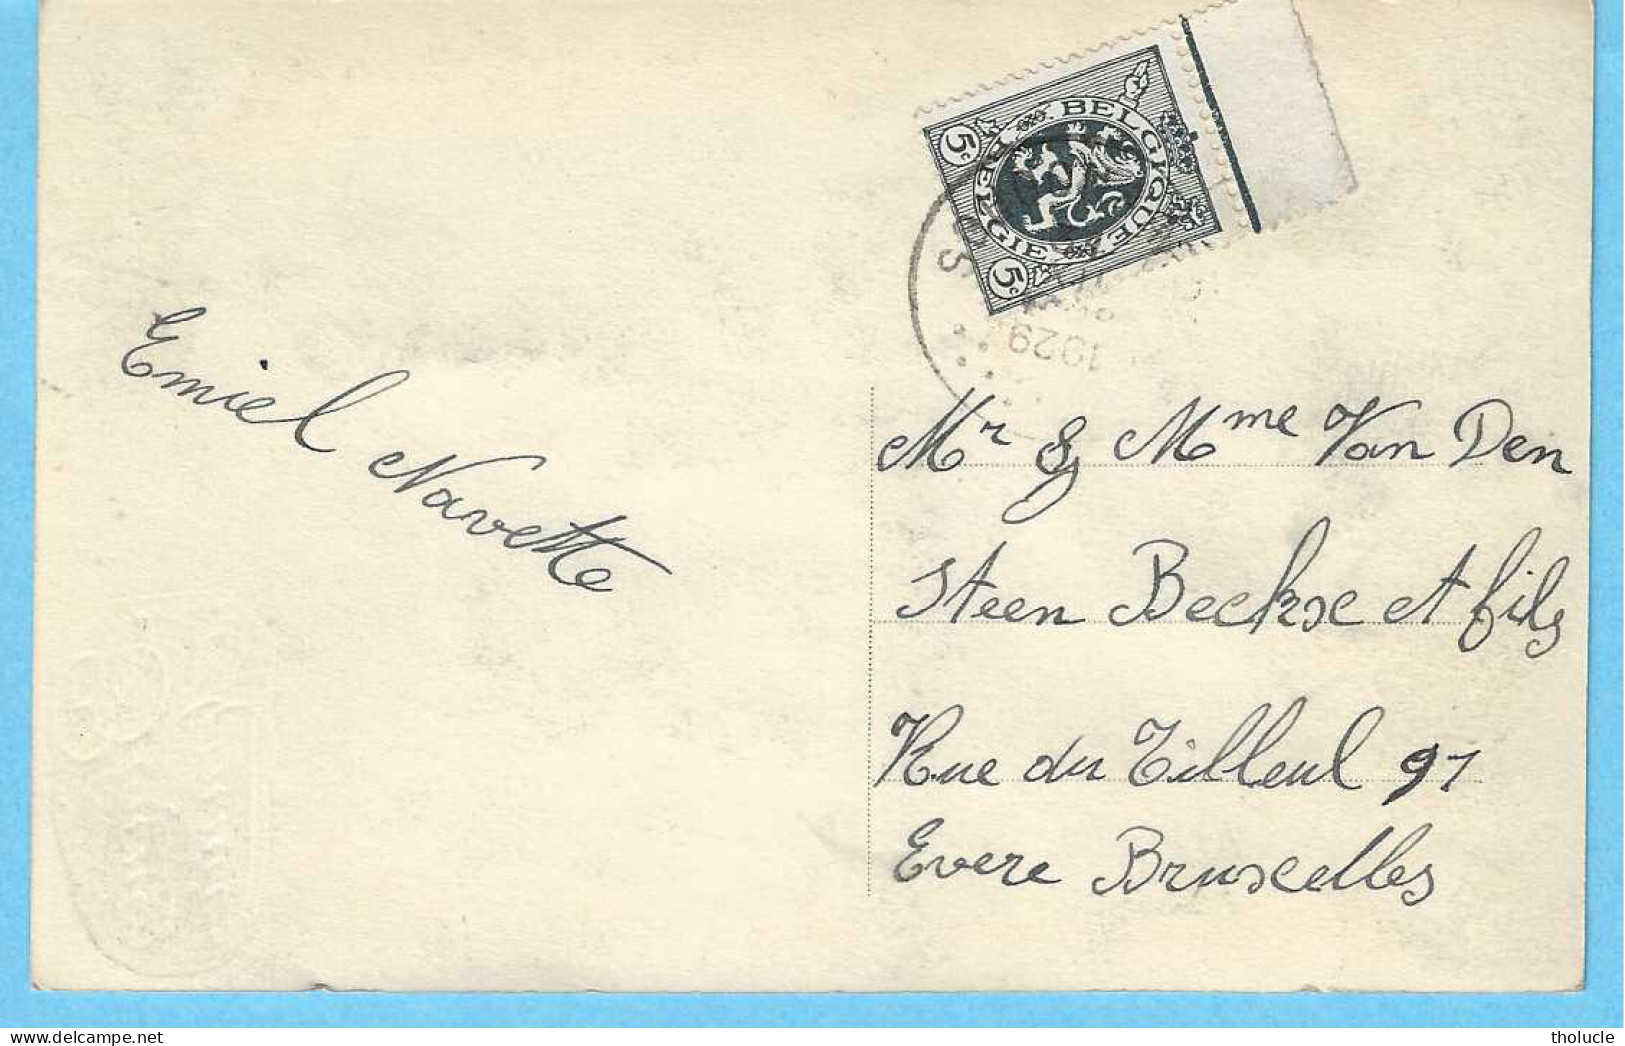 BELGIQUE
BELGIE
5c
5c
1929
Emiel Navette
Mr & Mme Van Den
Steen Beckx et fils
Rue du Tilleul 97
Evere Bruxelles
delcampe.net
tholucle